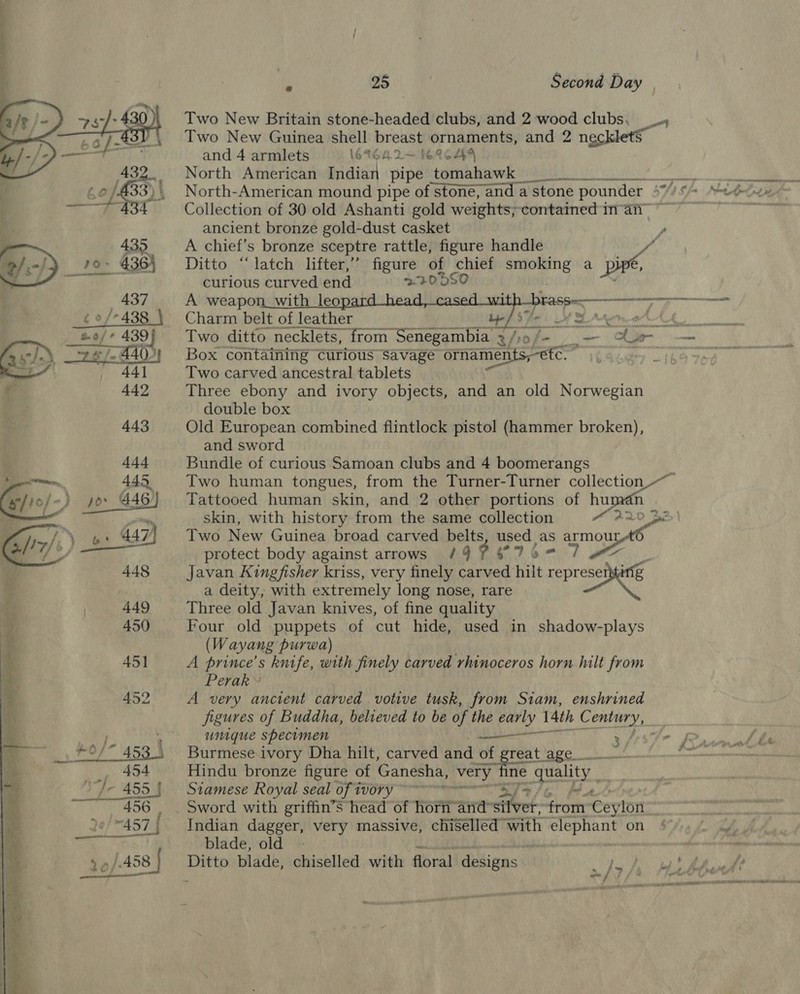 25 Second Day
430 Two New Britain stone-headed clubs, and 2 wood clubs,
431 Two New Guinea shell breast ornaments, and 2 necklets
and 4 armlets 169642-169649
432 North American Indian pipe tomahawk
433 North-American mound pipe of stone, and a stone pounder
434 Collection of 30 old Ashanti gold weights, contained in an
ancient bronze gold-dust casket
435 A chief's bronze sceptre rattle, figure handle
436 Ditto "latch lifter," figure of chief smoking a pipe,
curious curved end 220550
437 A weapon with leopard head, cased with brass
438 Charm belt of leather
439 Two ditto necklets, from Senegambia
440 Box containing curious savage ornaments, etc.
441 Two carved ancestral tablets
442 Three ebony and ivory objects, and an old Norwegian
double box
443 Old European combined flintlock pistol (hammer broken),
and sword
444 Bundle of curious Samoan clubs and 4 boomerangs
445 Two human tongues, from the Turner-Turner collection
446 Tattooed human skin, and 2 other portions of human
skin, with history from the same collection
447 Two New Guinea broad carved belts, used as armour to
protect body against arrows
448 Javan Kingfisher kriss, very finely carved hilt representing
a deity, with extremely long nose, rare
449 Three old Javan knives, of fine quality
450 Four old puppets of cut hide, used in shadow-plays
(Wayang purwa)
451 A prince's knife, with finely carved rhinoceros horn hilt from
Perak
452 A very ancient carved votive tusk, from Siam, enshrined
figures of Buddha, believed to be of the early 14th Century,
unique specimen
453 Burmese ivory Dha hilt, carved and of great age
454 Hindu bronze figure of Ganesha, very fine quality
455 Siamese Royal seal of ivory
456 Sword with griffin's head of horn and silver, from Ceylon
457 Indian dagger, very massive, chiselled with elephant on
blade, old
458 Ditto blade, chiselled with floral designs